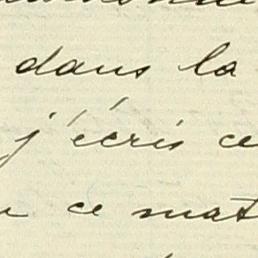 dans la
j'écris ce
ce mat